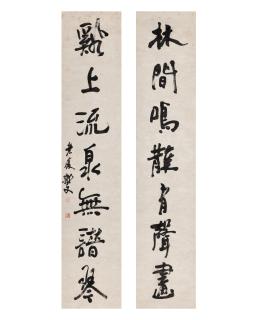 林間鳴蕉有聲畫
谿上流泉無譜琴